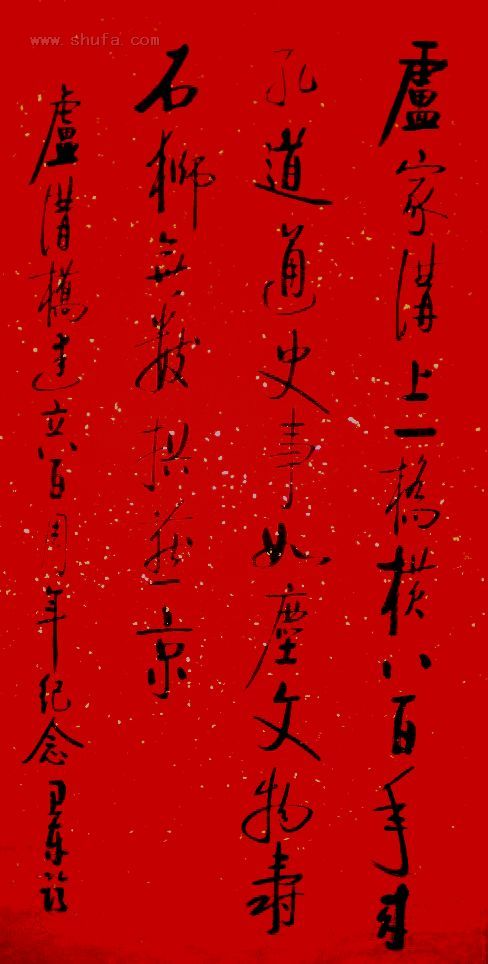 www.shufa.com
盧家溝上一橋橫八百年來
孔道通史事如塵文物壽
石獅無數拱燕京
盧溝橋建立八百周年紀念